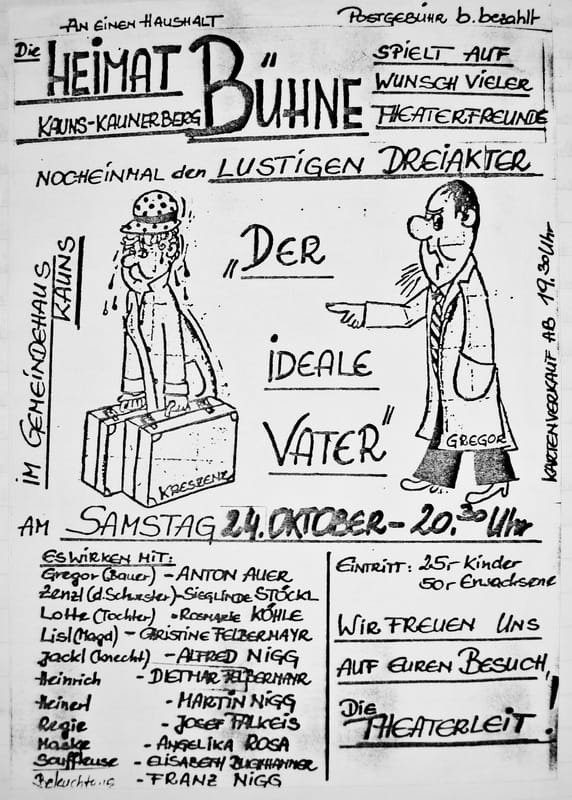 AN EINEN HAUSHALT
POSTGEBÜHR b. bezahlt
Die HEIMAT BÜHNE
KAUNS-KAUNERBERG
SPIELT AUF
WUNSCH VIELER
THEATERFREUNDE
NOCHEINMAL den LUSTIGEN DREIAKTER
IM GEMEINDEHAUS
KAUNS
„DER
IDEALE
VATER"
KRESZENZ
GREGOR
KARTENVERKAUF AB 19.30 Uhr
AM SAMSTAG 24. OKTOBER - 20.30 Uhr
ES WIRKEN MIT:
Gregor (Bauer) - ANTON AUER
Zenzl (d. Schwester) - SIEGLINDE STÖCKL
Lotte (Tochter) - ROSMARIE KÖHLE
Lisl (Magd) - CHRISTINE FELBERMAYR
Jackl (Knecht) - ALFRED NIGG
Heinrich - DIETMAR FELBERMAYR
Heinerl - MARTIN NIGG
Regie - JOSEF FALKEIS
Maske - ANGELIKA ROSA
Souffleuse - ELISABETH
Beleuchtung - FRANZ NIGG
EINTRITT: 25,- Kinder
50,- Erwachsene
WIR FREUEN UNS
AUF EUREN BESUCH,
Die
THEATERLEIT!